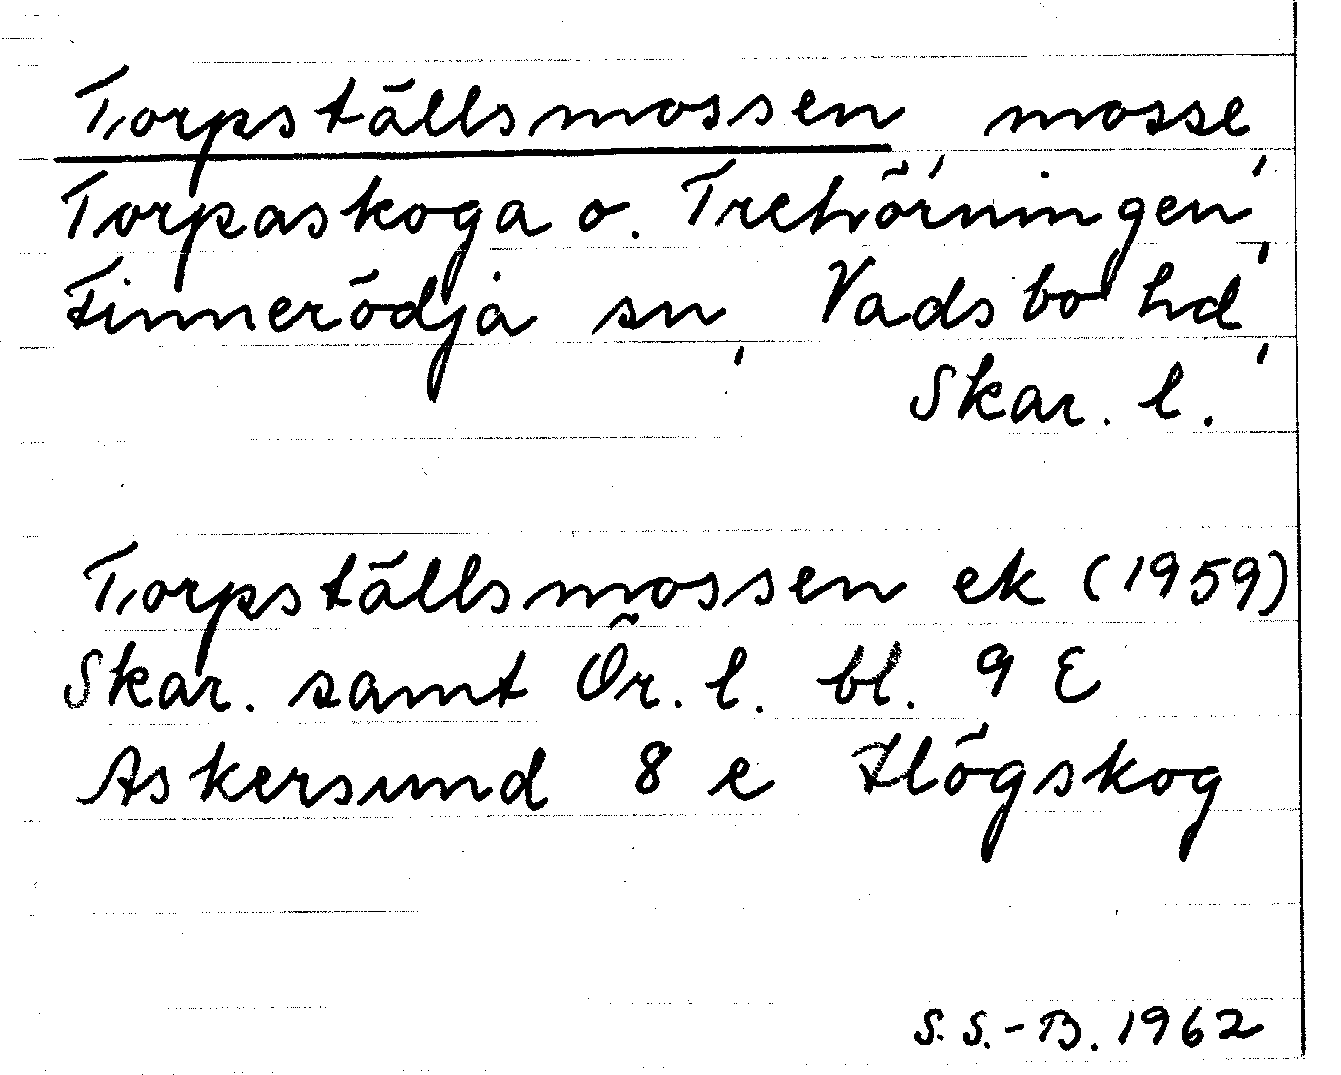 Torpställsmossen mosse,
Torpaskoga o. Trehörningen,
Finnerödja sn, Vadsbo hd,
Skar. l.
Torpställsmossen ek (1959)
Skar. samt Ör. l. bl. 9 E
Askersund 8 e Högskog
S. S.-B. 1962